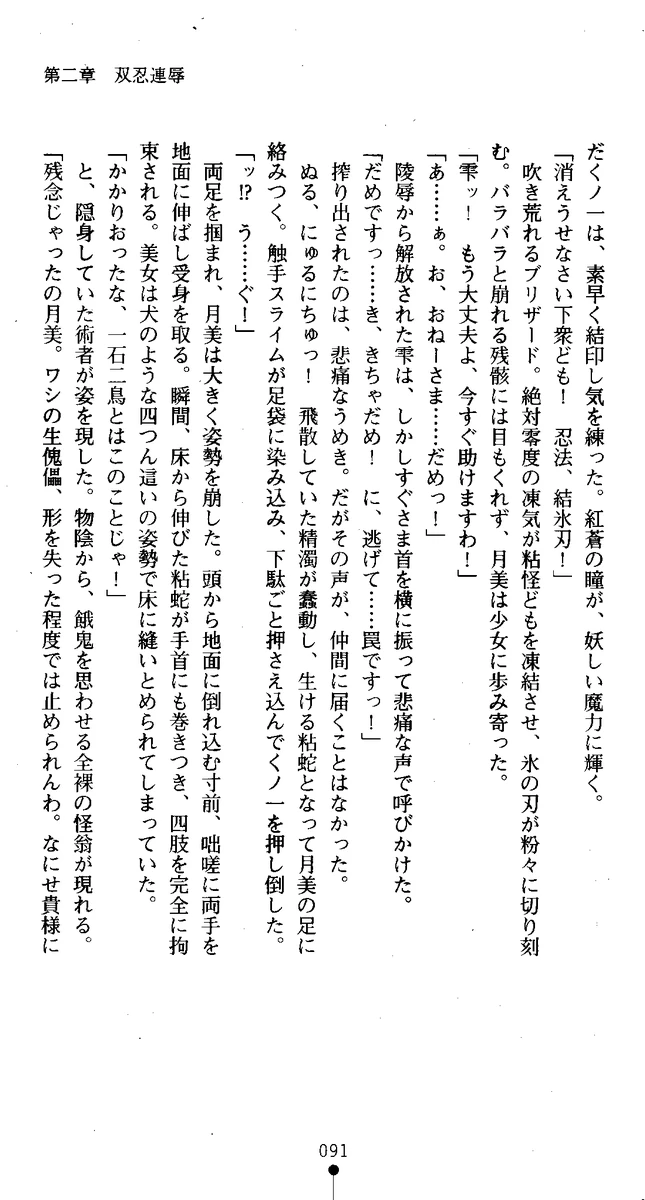 第二章　双忍連辱
だくノ一は、素早く結印し気を練った。紅蒼の瞳が、妖しい魔力に輝く。
「消えうせなさい下衆ども！　忍法、結氷刃！」
吹き荒れるブリザード。絶対零度の凍気が粘怪どもを凍結させ、氷の刃が粉々に切り刻
む。バラバラと崩れる残骸には目もくれず、月美は少女に歩み寄った。
「雫ッ！　もう大丈夫よ、今すぐ助けますわ！」
「あ……ぁ。お、おねーさま……だめっ！」
陵辱から解放された雫は、しかしすぐさま首を横に振って悲痛な声で呼びかけた。
「だめですっ……き、きちゃだめ！　に、逃げて……罠ですっ！」
搾り出されたのは、悲痛なうめき。だがその声が、仲間に届くことはなかった。
ぬる、にゅるにちゅっ！　飛散していた精濁が蠢動し、生ける粘蛇となって月美の足に
絡みつく。触手スライムが足袋に染み込み、下駄ごと押さえ込んでくノ一を押し倒した。
「ッ!?　う……ぐ！」
両足を掴まれ、月美は大きく姿勢を崩した。頭から地面に倒れ込む寸前、咄嗟に両手を
地面に伸ばし受身を取る。瞬間、床から伸びた粘蛇が手首にも巻きつき、四肢を完全に拘
束される。美女は犬のような四つん這いの姿勢で床に縫いとめられてしまっていた。
「かかりおったな、一石二鳥とはこのことじゃ！」
と、隠身していた術者が姿を現した。物陰から、餓鬼を思わせる全裸の怪翁が現れる。
「残念じゃったの月美。ワシの生傀儡、形を失った程度では止められんわ。なにせ貴様に
091